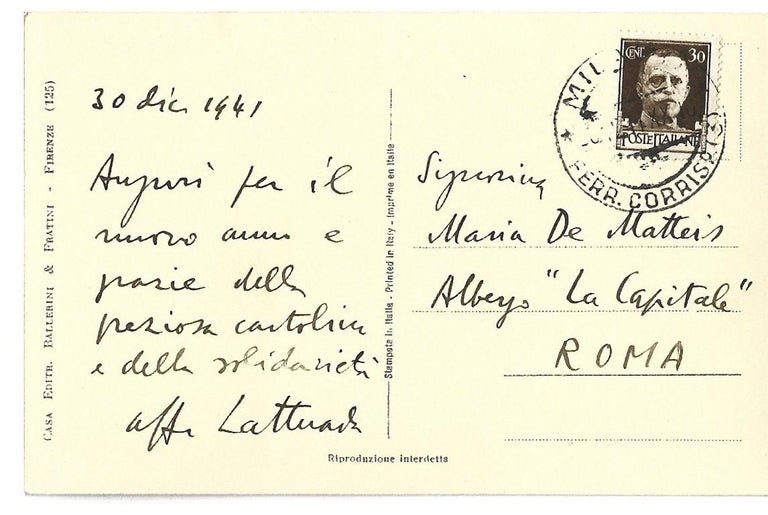 CASA EDITR. BALLERINI & FRATINI - FIRENZE (125)
30 dic 1941
Auguri per il
nuovo anno e
grazie della
preziosa cartolina
e della solidarietà
aff. Lattuada
Stampata in Italia - Printed in Italy - Imprimé en Italie
Riproduzione interdetta
CENT. 30
POSTE ITALIANE
MIL
FERR. CORRISP.
Signorina
Maria De Matteis
Albergo "La Capitale"
ROMA